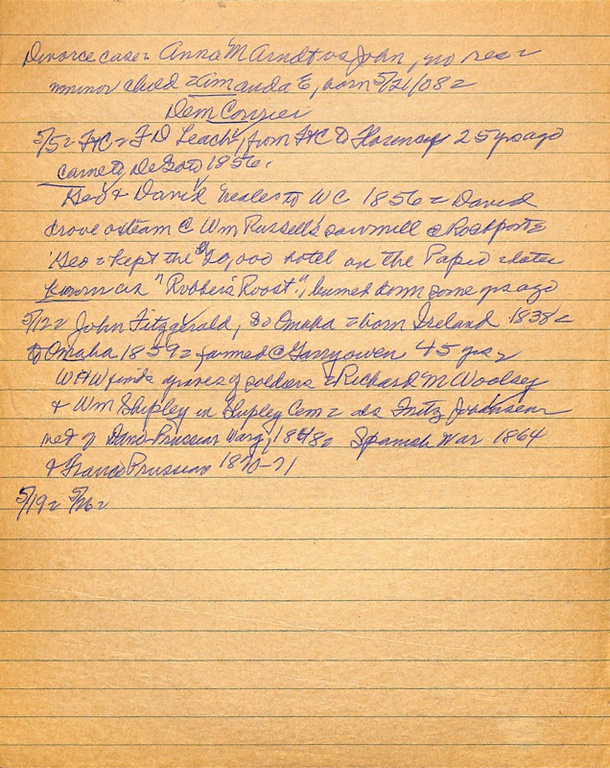 Divorce case = Anna M Arndt vs John, no res =
minor child = Amanda E, born 5/21/08 =
Dem Courier
5/5 = FtC = F D Leach, from FtC to Florence 25 yrs ago
came to DeSoto 1856.
Geo & David Neale to WC 1856 = David
drove oxteam @ Wm Russell's sawmill @ Rockport =
Geo = kept the $20,000 hotel on the Papio = later
known as "Robber's Roost", burned down some yrs ago
5/12 = John Fitzgerald, So Omaha = born Ireland 1838 =
to Omaha 1859 = farmed @ Garryowen 45 yrs =
finds graves of soldiers = Richard M Woolsey
& Wm Shipley in Shipley Cem = as Fritz
vet of Dano-Prussian War, 1848 = Spanish War 1864
& Franco Prussian 1870-71
5/19 = 5/26 =